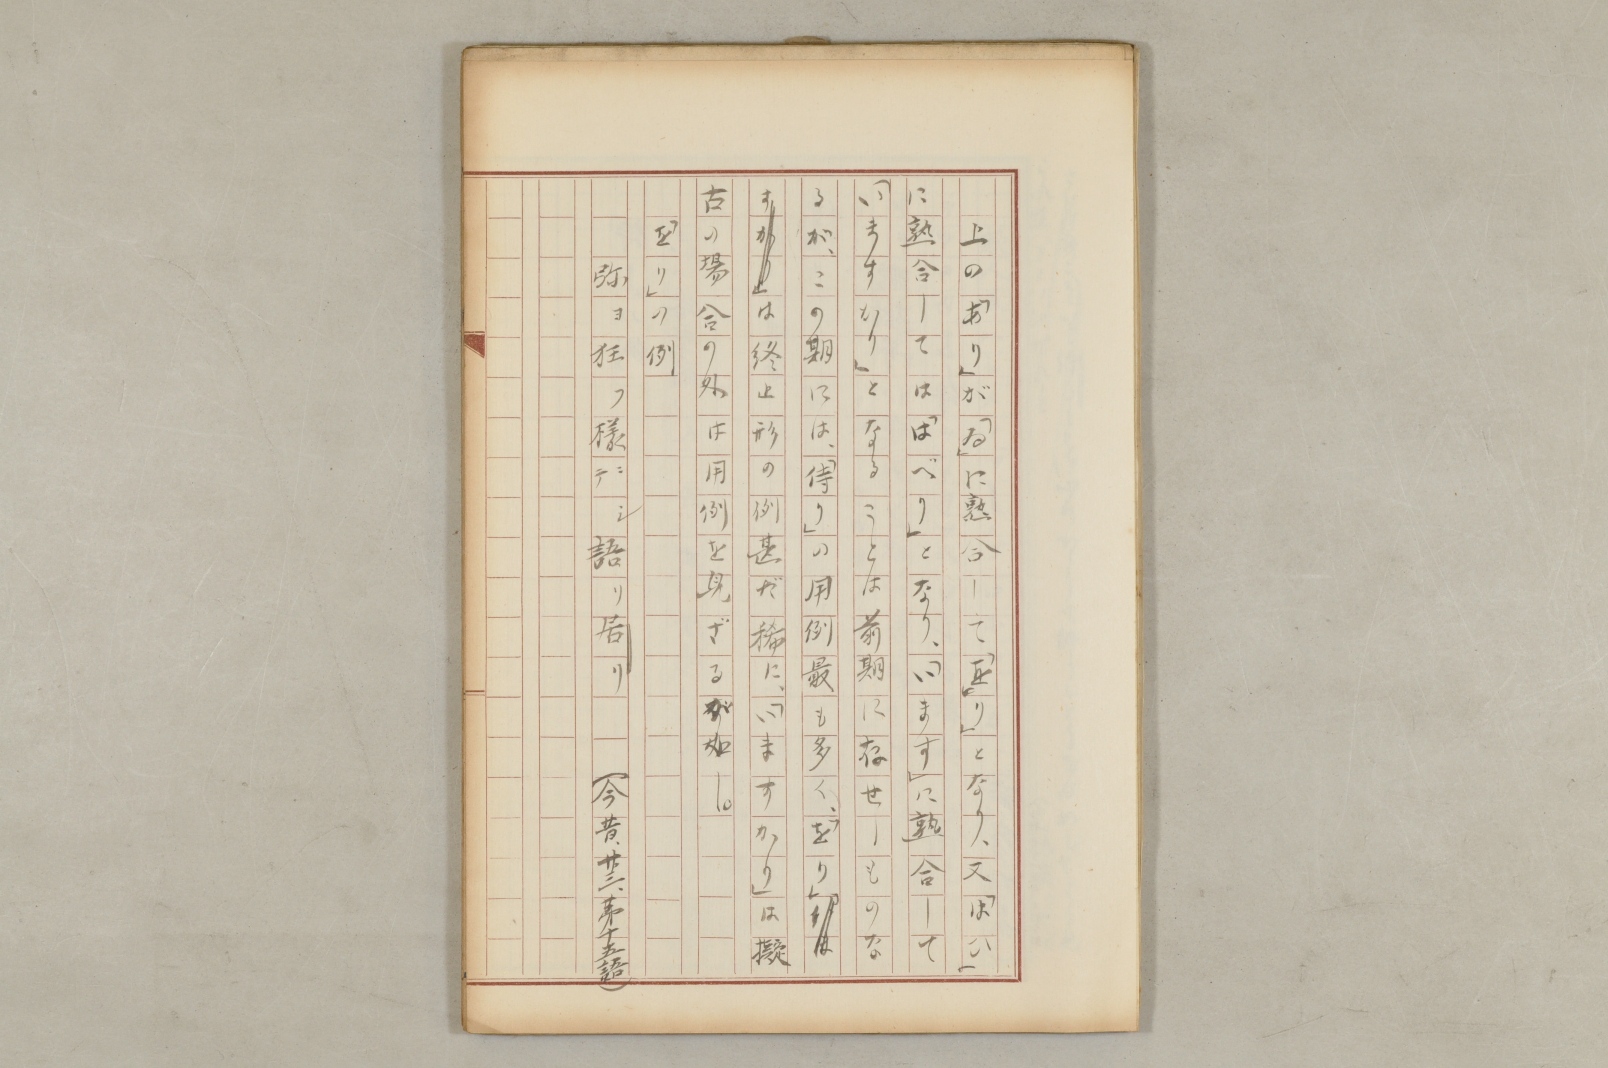 上の「あり」が「ゐ」に熟合して「をり」となり、又「はひ」
に熟合しては「はべり」となり、「います」に熟合して
「いますかり」となることは前期に存せしものな
るが、この期には、「侍り」の用例最も多く、「をり」は
は終止形の例甚だ稀に、「いますかり」は擬
古の場合の外は用例を見ざるが如し。
「をり」の例
弥ヨ狂フ様ニテシ語リ居リ (今昔、廿三、第十五語)